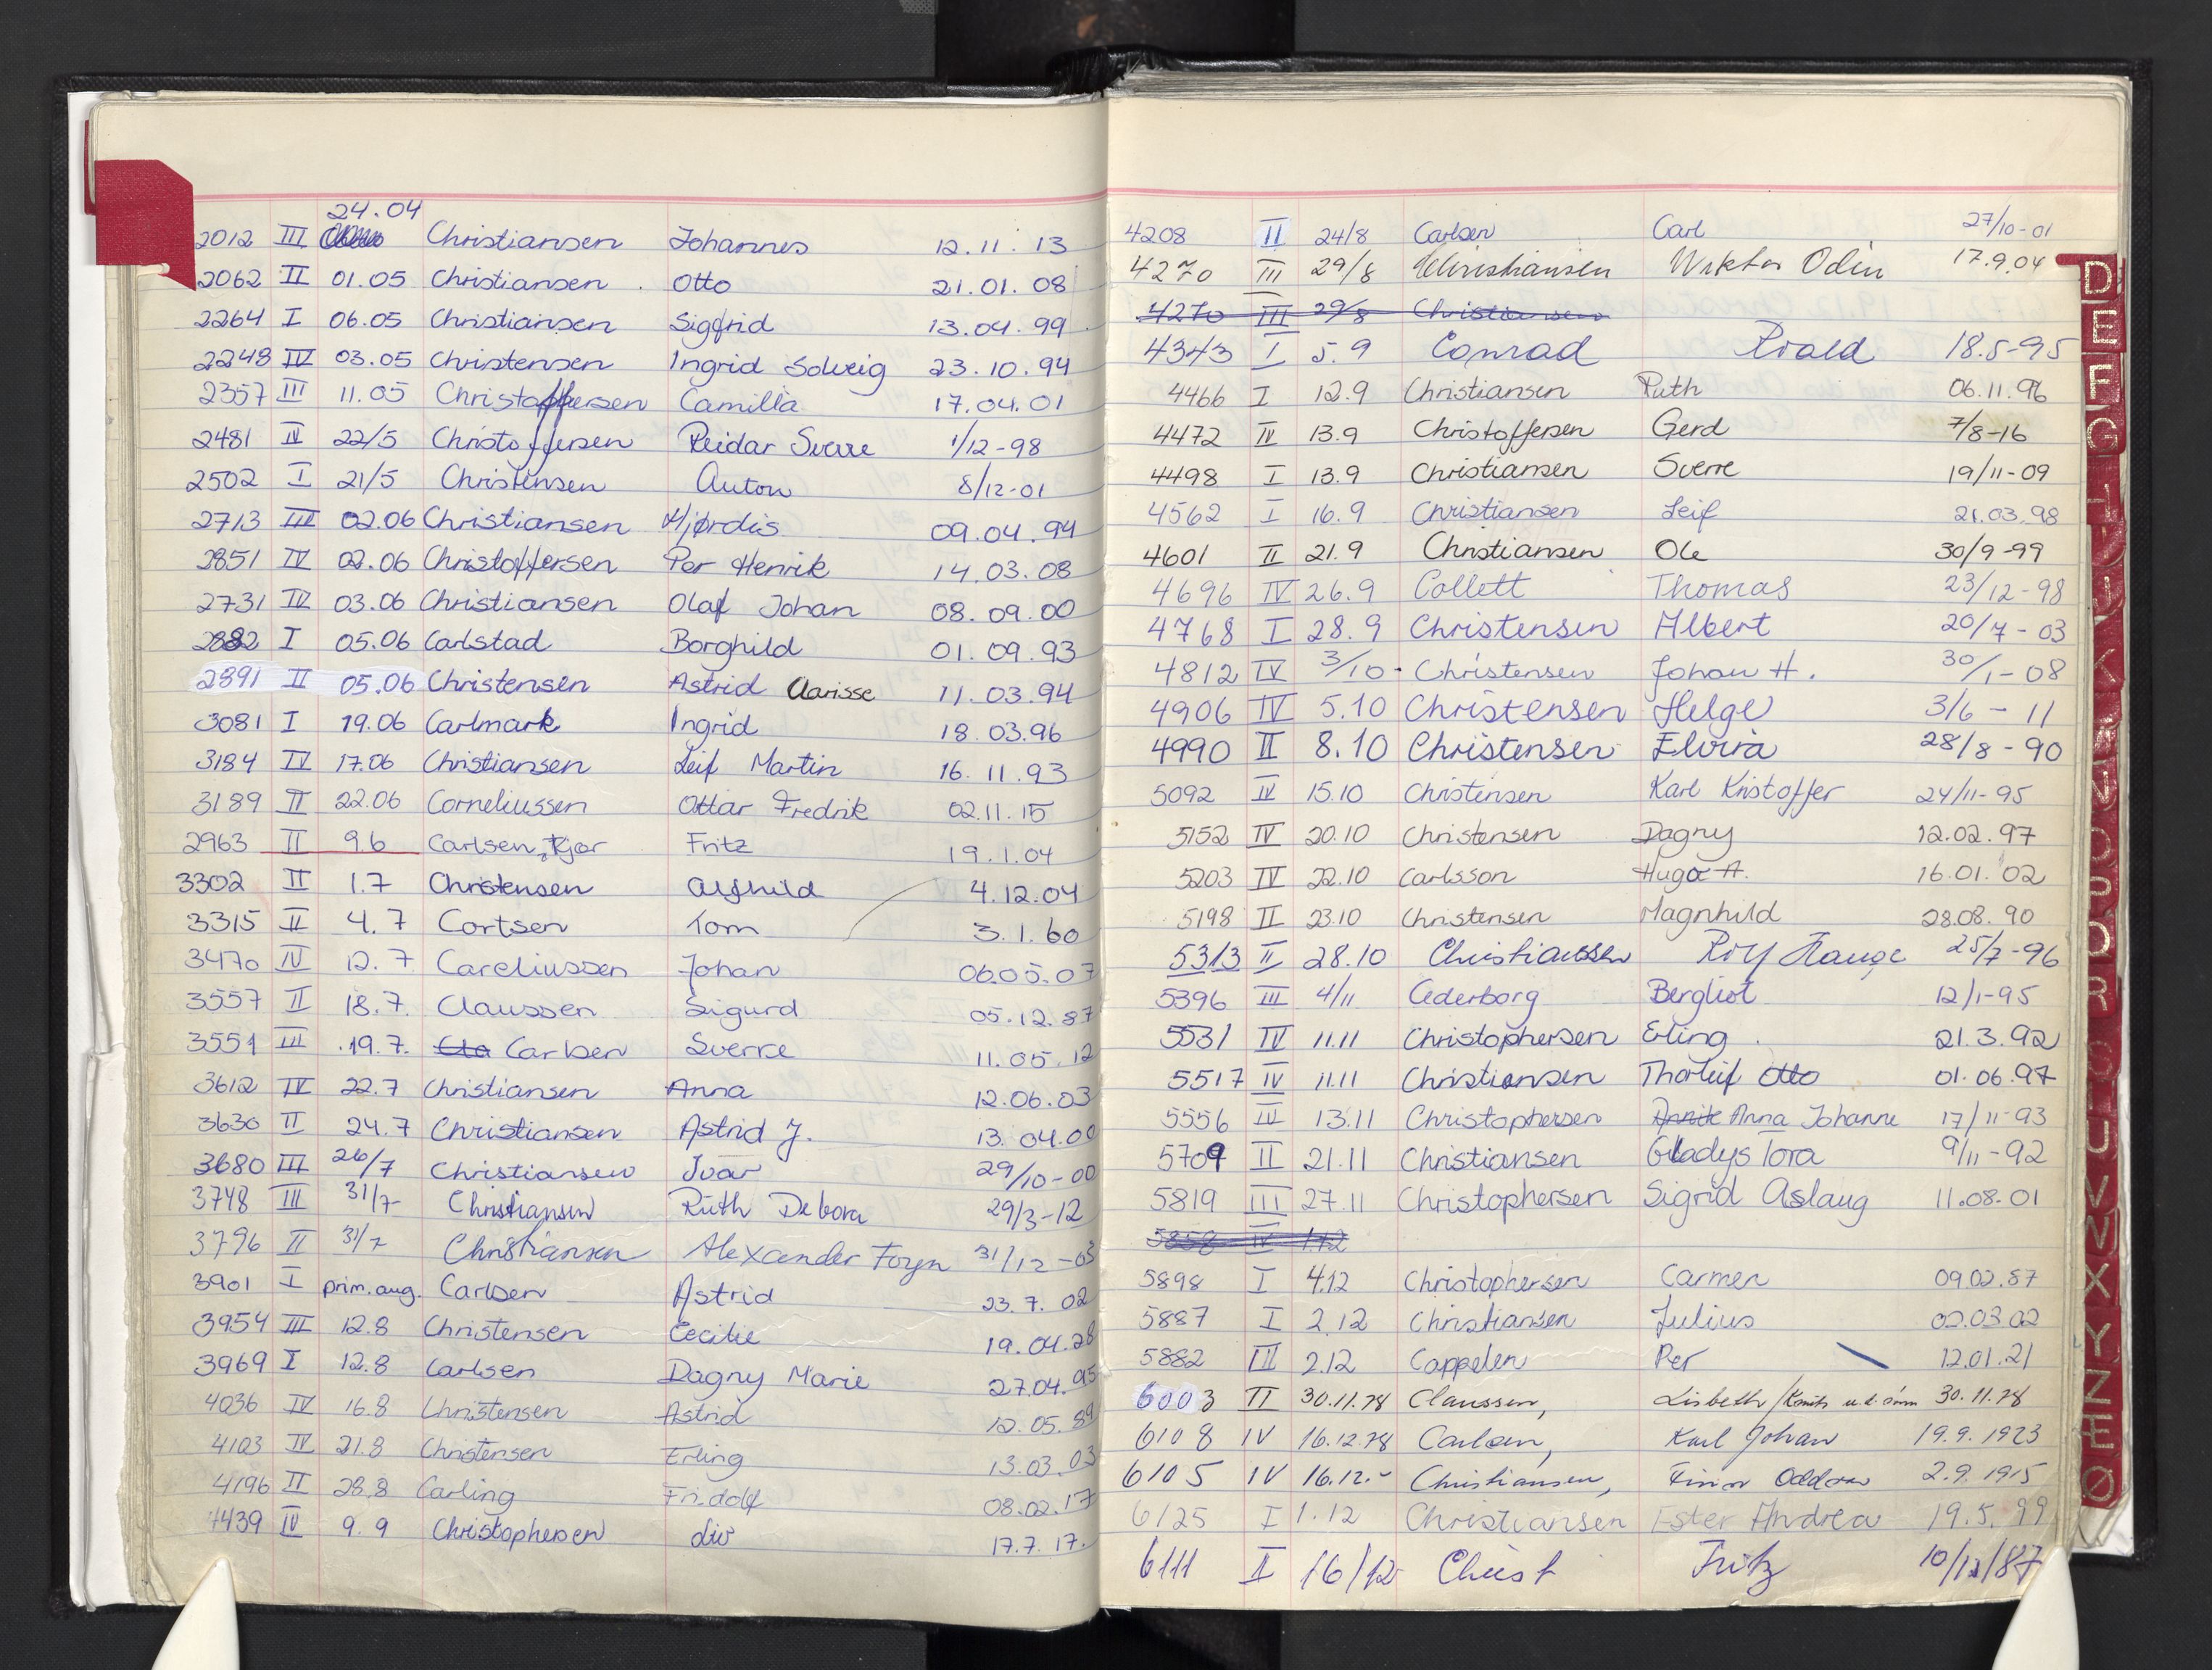 24.04
2012 III Christiansen Johannes 12.11.13
2062 II 01.05 Christiansen Otto 21.01.08
2264 I 06.05 Christiansen Sigfrid 13.04.99
2248 IV 03.05 Christensen Ingrid Solveig 23.10.94
2357 III 11.05 Christoffersen Camilla 17.04.01
2481 IV 22/5 Christoffersen Reidar Sverre 1/12-98
2502 I 21/5 Christensen Anton 8/12-01
2713 III 02.06 Christiansen Hjørdis 09.04.94
2851 IV 02.06 Christoffersen Per Henrik 14.03.08
2731 IV 03.06 Christiansen Olaf Johan 08.09.00
2882 I 05.06 Carlstad Borghild 01.09.93
2891 II 05.06 Christensen Astrid Clarisse 11.03.94
3081 I 19.06 Carlmark Ingrid 18.03.96
3184 IV 17.06 Christiansen Leif Martin 16.11.93
3189 II 22.06 Corneliussen Ottar Fredrik 02.11.15
2963 II 9.6 Carlsen, Kjær Fritz 19.1.04
3302 II 1.7 Christensen Alfhild 4.12.04
3315 II 4.7 Cortsen Tom 3.1.60
3470 IV 12.7 Careliussen Johan 06.05.07
3557 II 18.7. Claussen Sigurd 05.12.87
3551 III 19.7. Cla Carlsen Sverre 11.05.12
3612 IV 22.7 Christiansen Anna 12.06.03
3630 II 24.7 Christiansen Astrid J. 13.04.00
3680 III 26/7 Christiansen Ivar 29/10-00
3748 III 31/7 Christiansen Ruth Debora 29/3-12
3796 II 31/7 Christiansen Alexander Foyn 31/12-03
3901 I prim.aug. Carlsen Astrid 23.7.02
3954 III 12.8 Christensen Cecilie 19.04.28
3969 I 12.8 Carlsen Dagny Marie 27.04.95
4036 IV 16.8 Christensen Astrid 12.05.89
4103 IV 21.8 Christensen Erling 13.03.03
4196 II 28.8 Carling Fridolf 08.02.17
4439 IV 9.9 Christophersen Liv 17.7.17.
4208 II 24/8 Carlsen Carl 27/10-01
4270 III 29/8 Christiansen Wiktor Odin 17.9.04
4270 III 29/8 Christiansen
4343 I 5.9 Conrad Roald 18.5-95
4466 I 12.9 Christiansen Ruth 06.11.96
4472 IV 13.9 Christoffersen Gerd 7/8-16
4498 I 13.9 Christiansen Sverre 19/11-09
4562 I 16.9 Christiansen Leif 21.03.98
4601 II 21.9 Christiansen Ole 30/9-99
4696 IV 26.9 Collett Thomas 23/12-98
4768 I 28.9 Christensen Albert 20/7-03
4812 IV 3/10 Christensen Johan H. 30/1-08
4906 IV 5.10 Christensen Helge 3/6-11
4990 II 8.10 Christensen Elvira 28/8-90
5092 IV 15.10 Christensen Karl Kristoffer 24/11-95
5152 IV 20.10 Christensen Dagny 12.02.97
5203 IV 22.10 Carlsson Hugo A. 16.01.02
5198 II 23.10 Christensen Magnhild 28.08.90
5313 II 28.10 Christiansen Roy Hauge 25/7-96
5396 III 4/11 Cederborg Bergliot 12/1-95
5531 IV 11.11 Christophersen Erling 21.3.92
5517 IV 11.11 Christiansen Thorleif Otto 01.06.97
5556 III 13.11 Christophersen Anna Johanne 17/11-93
5709 II 21.11 Christiansen Gladys Tora 9/11-92
5819 III 27.11 Christophersen Sigrid Aslaug 11.08.01
5858 IV 1.12
5898 I 4.12 Christophersen Carmen 09.02.87
5887 I 2.12 Christiansen Julius 02.03.02
5882 III 2.12 Cappelen Per 12.01.21
6003 II 30.11.78 Claussen, Lisbeth 30.11.78
6108 IV 16.12.78 Carlsen, Karl Johan 19.9.1923
6105 IV 16.12.- Christiansen, Finn Oddvar 2.9.1915
6125 I 1.12 Christiansen Ester Andrea 19.5.99
6111 II 16/12 Christ Fritz 10/12/87
D
E
F
G
H
I
J
K
L
M
N
O
P
Q
R
S
T
U
V
W
X
Y
Z
Æ
Ø